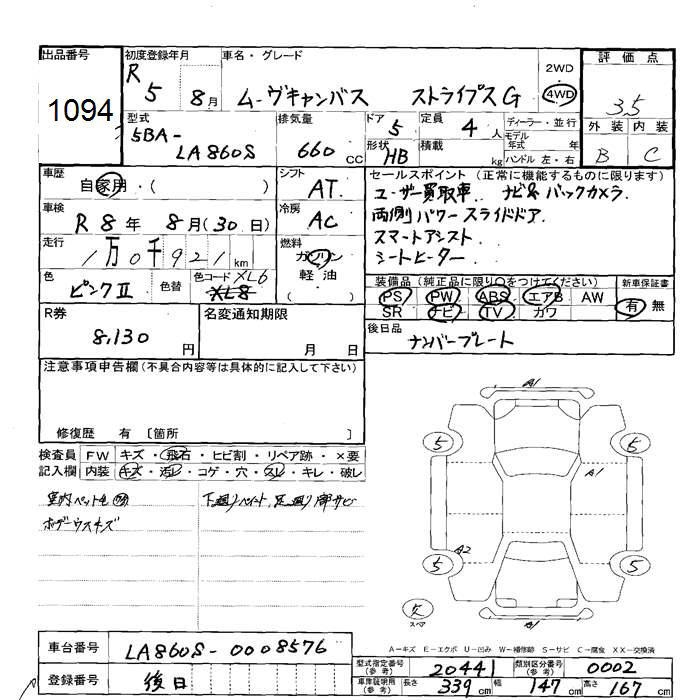 出品番号
1094
初度登録年月
R 5 8月
車名・グレード
ムーヴキャンバス ストライプスG
2WD
4WD
評価点
3.5
外装 内装
B C
型式
5BA-
LA860S
排気量
660 CC
ドア 5
定員 4 人
形状 HB
積載 kg
ディーラー・並行
モデル年式 年
ハンドル 左・右
車歴
自家用・( )
シフト
AT
セールスポイント (正常に機能するものに限ります)
ユーザー買取車. ナビ&バックカメラ.
両側パワースライドドア.
スマートアシスト.
シートヒーター.
車検
R 8年 8月(30日)
冷房
AC
走行
1万0千921km
燃料
ガソリン
軽油
( )
色
ピンクⅡ
色替
色コード XL6
XL8
装備品(純正品に限り○をつけてください)
PS PW ABS エアB AW
SR ナビ TV カワ
新車保証書
有 無
R券
8,130 円
名変通知期限
月 日
後日品
ナンバープレート
注意事項申告欄(不具合内容等は具体的に記入して下さい)
修復歴 有 〔箇所 〕
検査員
記入欄
FW キズ・飛石・ヒビ割・リペア跡・×要
内装 キズ・汚レ・コゲ・穴・スレ・キレ・破レ
室内ペット毛
ボデーウスキズ
A1
5
5
A1
A2
5
5
欠
スペア
A1
A-キズ E-エクボ U-凹み W-補修跡 S-サビ C-腐食 XX-交換済
車台番号
LA860S-0008576
登録番号
後日
型式指定番号(参考)
20441
類別区分番号(参考)
0002
車庫証明用(参考)
長さ 339cm 幅 147cm 高さ 167cm